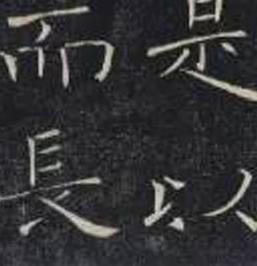 是以
而長